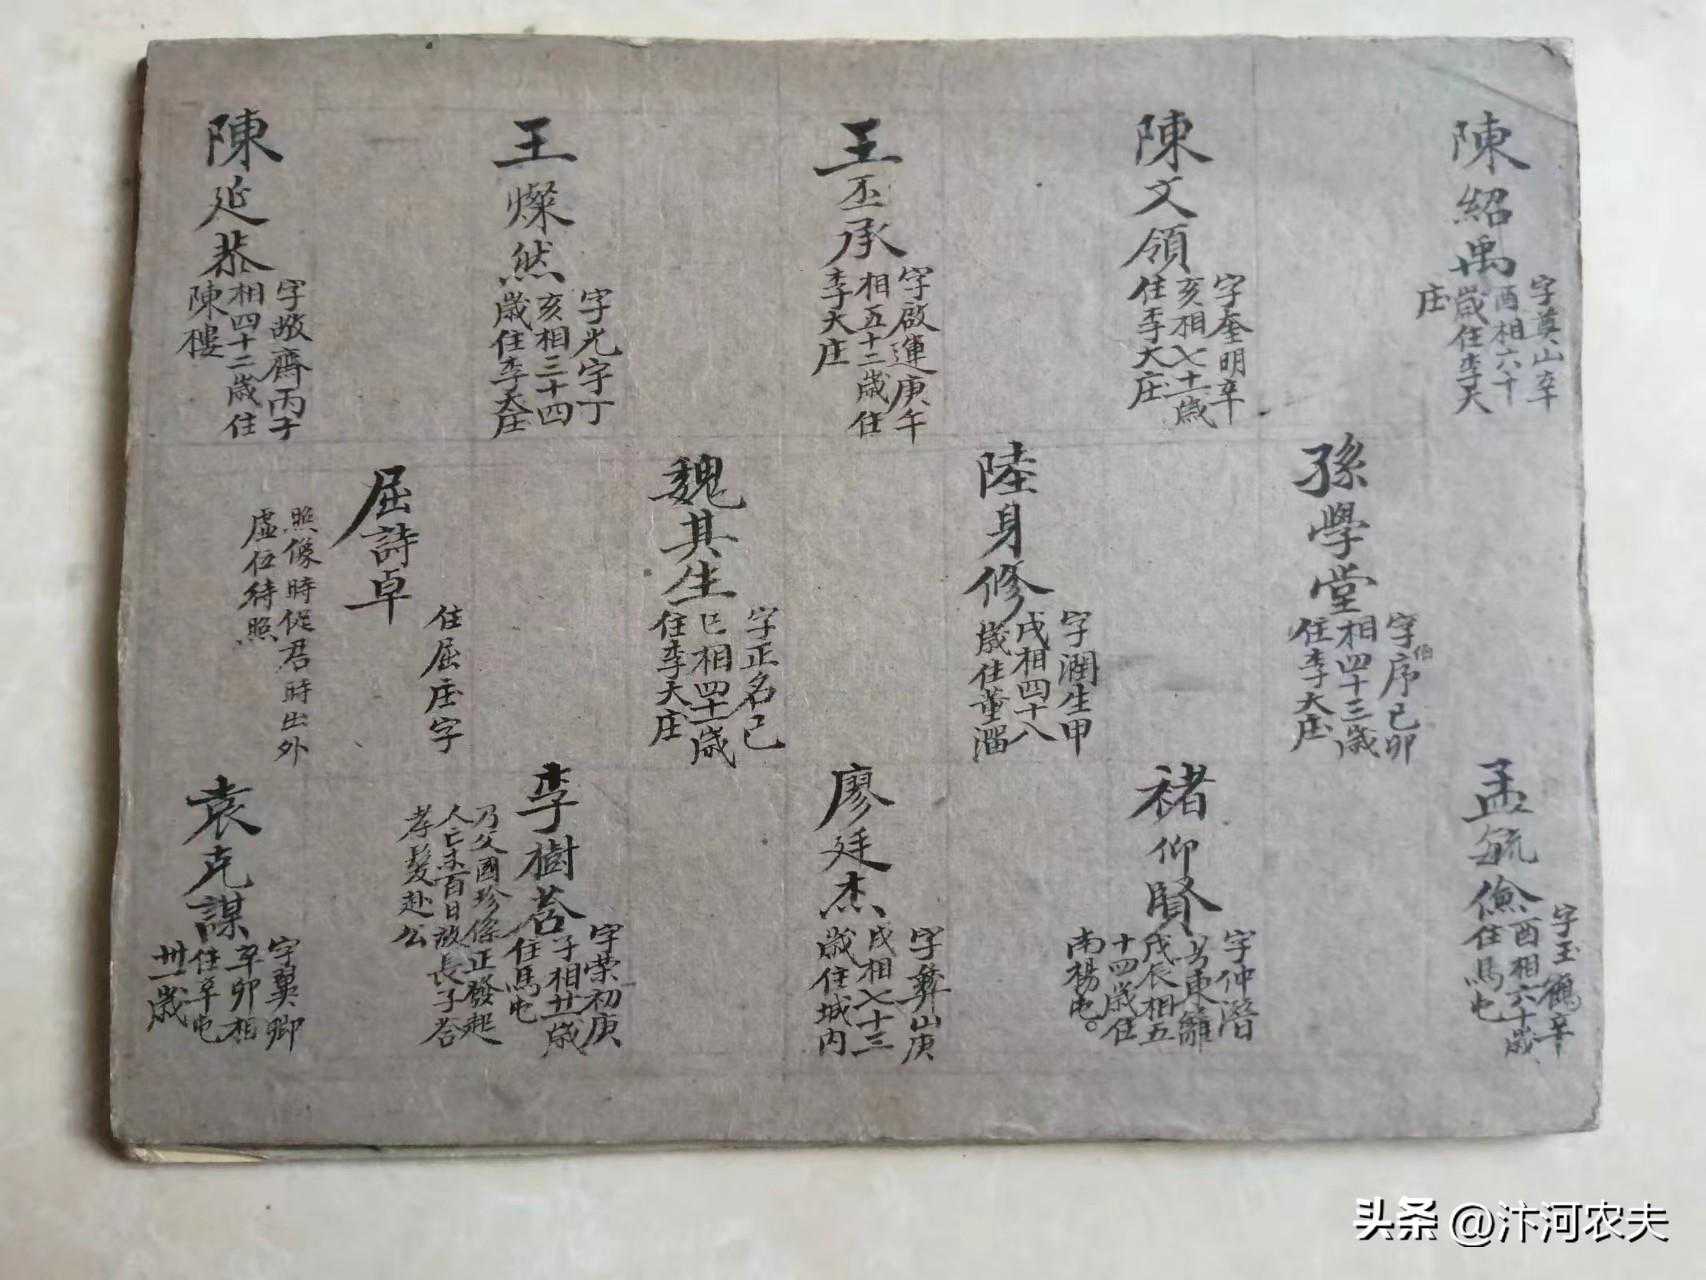 陳紹禹
字奠山辛
酉相六十
歲住李大
庄
陳文領
字奎明辛
亥相七十一歲
住李大庄
王丕承
字啟運庚午
相五十二歲住
李大庄
王燦然
字光宇丁
亥相三十四
歲住李大庄
陳延恭
字敬齋丙子
相四十二歲住
陳樓
孫學堂
字伯序己卯
相四十三歲
住李大庄
陸身修
字潤生甲
戌相四十八
歲住董溜
魏其生
字正名己
巳相四十一歲
住李大庄
屈詩卓
住屈庄字
照像時從君時出外
虛位待照
孟毓儉
字玉鶴辛
酉相六十歲
住馬屯
褚仰賢
字仲潛
号東籬
戊辰相五
十四歲住
南楊屯。
廖廷杰
字彝山庚
戌相七十三
歲住城內
李樹荅
字榮初庚
子相廿一歲
住馬屯
乃父國珍係正發起
人亡未百日故長子荅
孝髮赴公
袁克謀
字翼卿
辛卯相
住辛屯
卅一歲
头条 @汴河农夫